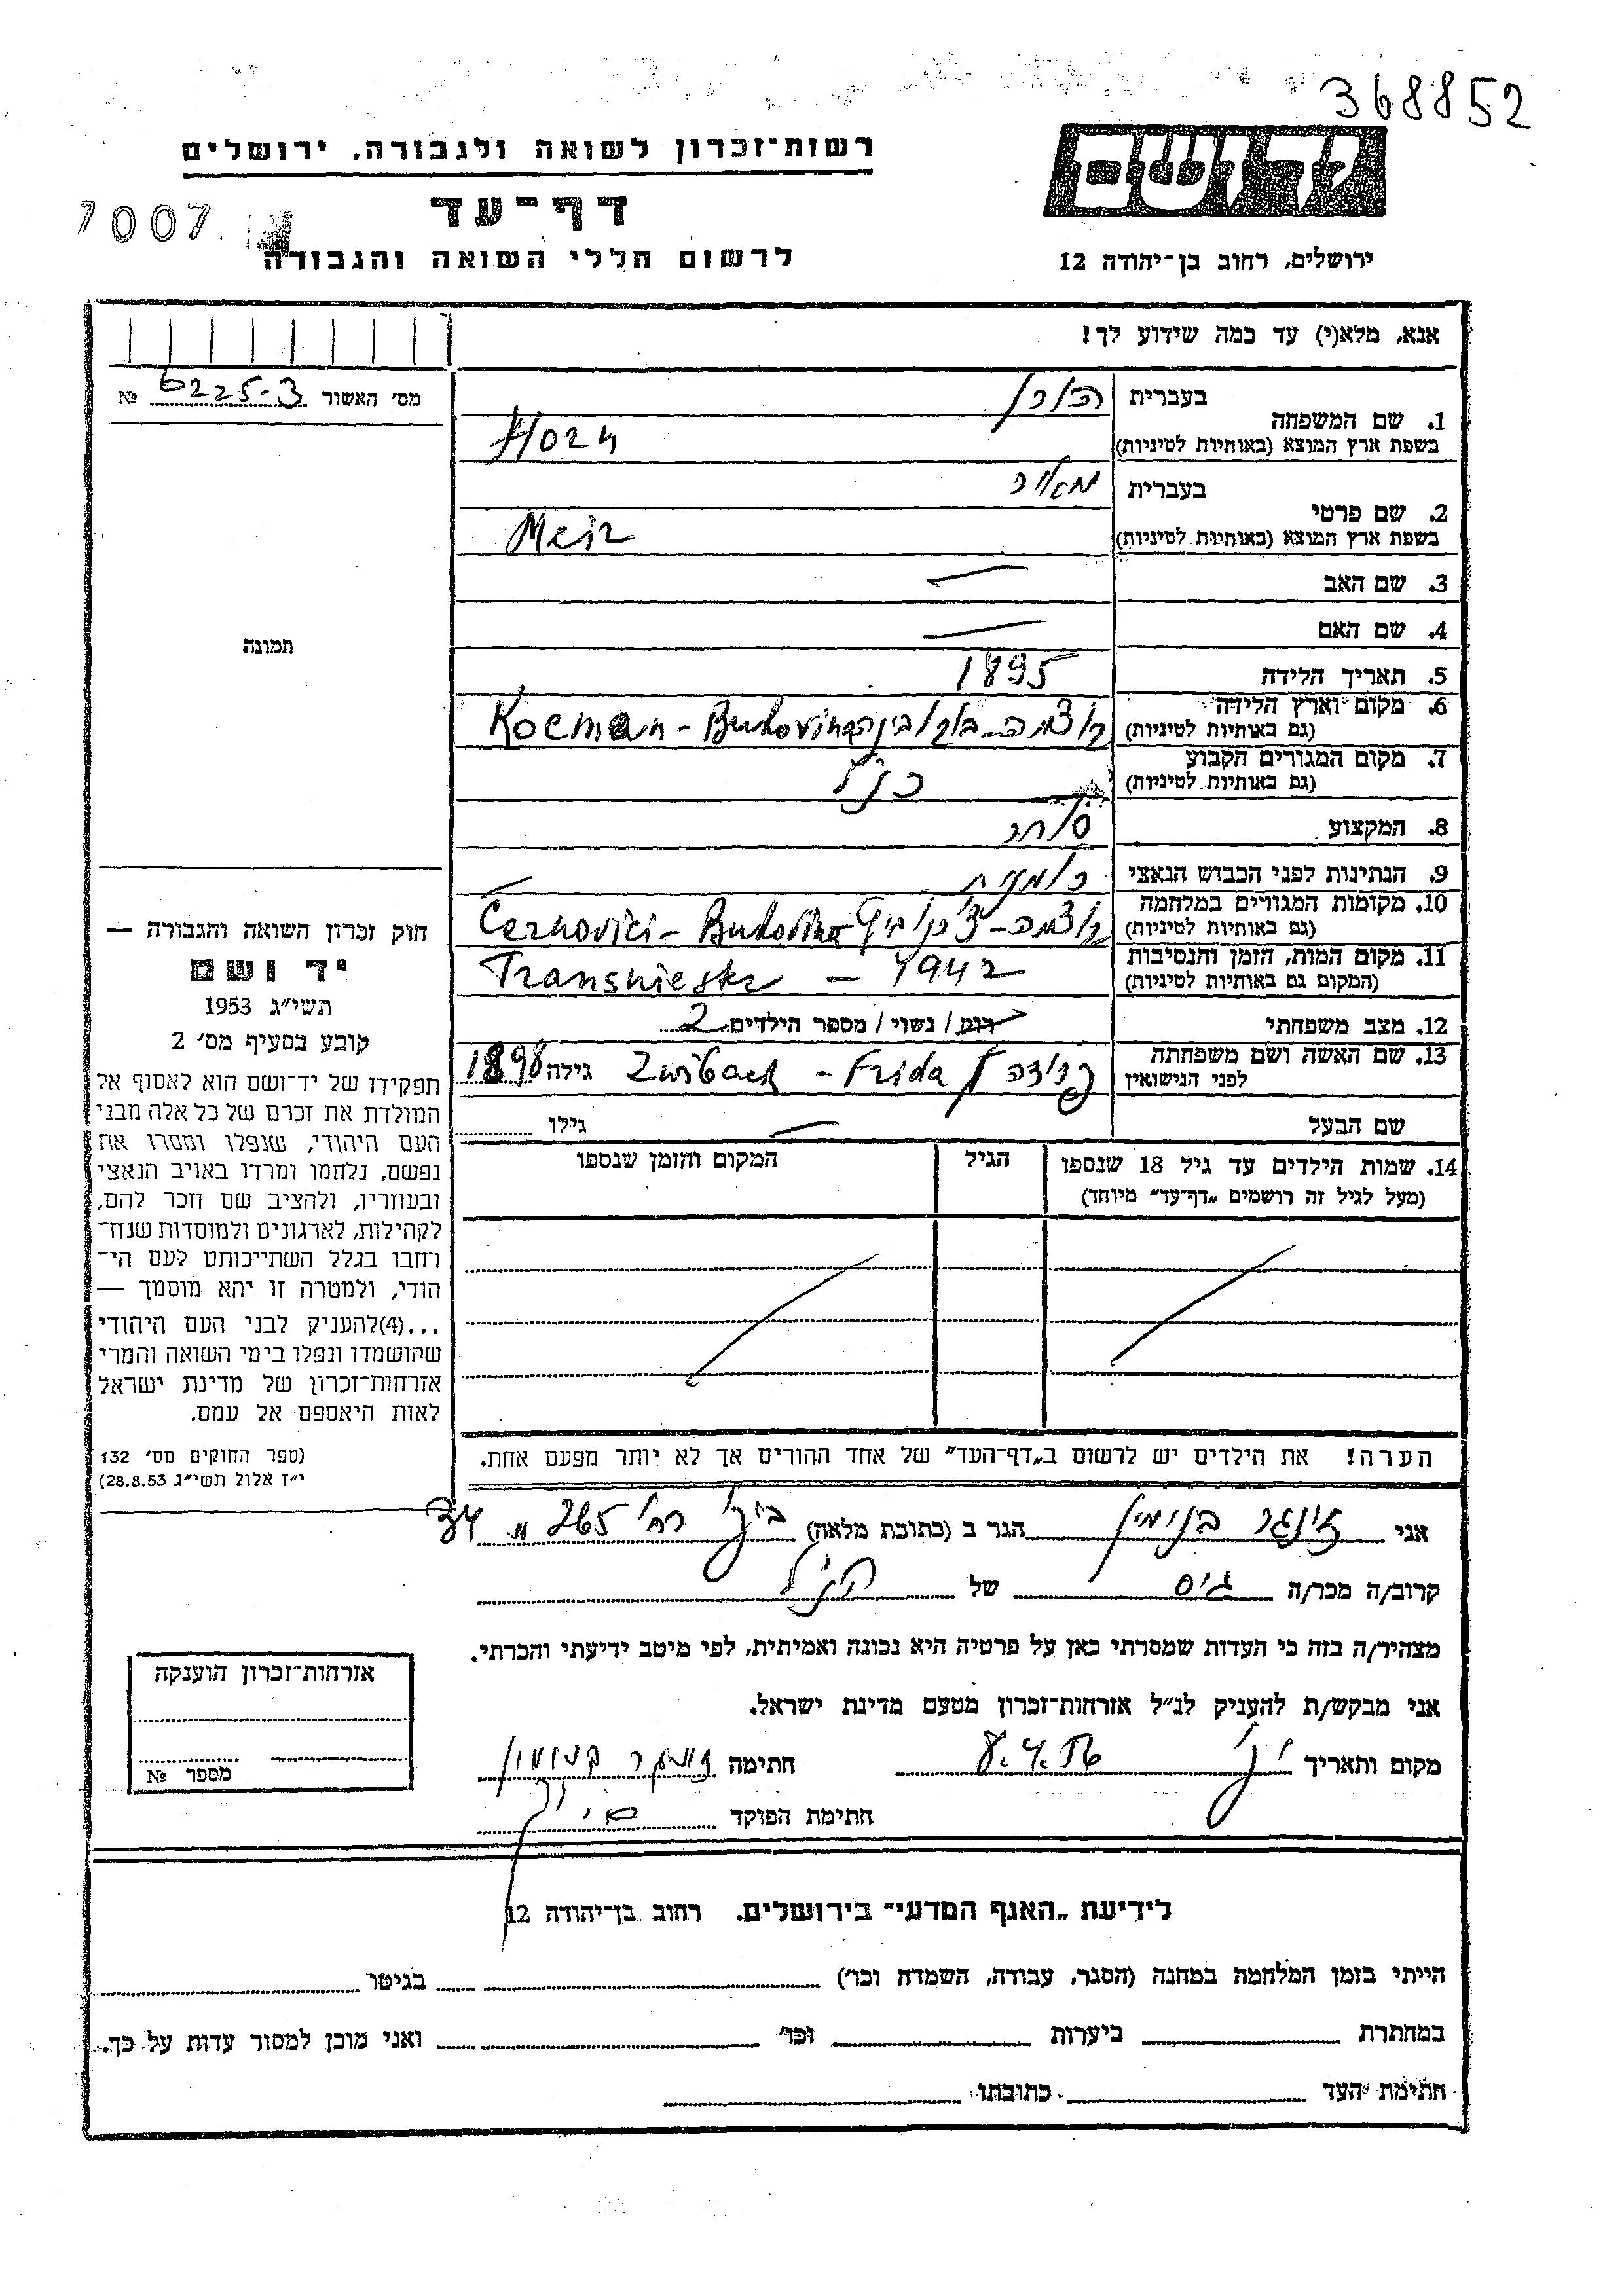 368852
יד ושם
רשות־זכרון לשואה ולגבורה, ירושלים
דף־עד
7007
לרשום חללי השואה והגבורה
ירושלים, רחוב בן־יהודה 12
אנא, מלא(י) עד כמה שידוע לך!
מס׳ האשור 6225-3 №
1. שם המשפחה
בעברית הורן
בשפת ארץ המוצא (באותיות לטיניות) Horn
2. שם פרטי
בעברית מאיר
בשפת ארץ המוצא (באותיות לטיניות) Meir
3. שם האב —
4. שם האם —
תמונה
5. תאריך הלידה 1895
6. מקום וארץ הלידה
(גם באותיות לטיניות) קוצמן - בוקובינה Kocman - Bukovina
7. מקום המגורים הקבוע
(גם באותיות לטיניות) כנ״ל
8. המקצוע סוחר
9. הנתינות לפני הכבוש הנאצי רומנית
10. מקומות המגורים במלחמה
(גם באותיות לטיניות) Cernovici - Bukovina
11. מקום המות, הזמן והנסיבות
(המקום גם באותיות לטיניות) Transniestr - 1942
12. מצב משפחתי רווק / נשוי / מספר הילדים 2
13. שם האשה ושם משפחתה
לפני הנישואין פרידה Zwibach - Frida גילה 1898
שם הבעל — גילו
14. שמות הילדים עד גיל 18 שנספו
(מעל לגיל זה רושמים „דף־עד״ מיוחד)
הגיל
המקום והזמן שנספו
הערה! את הילדים יש לרשום ב„דף־העד״ של אחד ההורים אך לא יותר מפעם אחת.
חוק זכרון השואה והגבורה —
יד ושם
תשי״ג 1953
קובע בסעיף מס׳ 2
תפקידו של יד־ושם הוא לאסוף אל
המולדת את זכרם של כל אלה מבני
העם היהודי, שנפלו ומסרו את
נפשם, נלחמו ומרדו באויב הנאצי
ובעוזריו, ולהציב שם וזכר להם,
לקהילות, לארגונים ולמוסדות שנח־
רחבו בגלל השתייכותם לעם הי־
הודי, ולמטרה זו יהא מוסמך —
...(4)להעניק לבני העם היהודי
שהושמדו ונפלו בימי השואה והמרי
אזרחות־זכרון של מדינת ישראל
לאות היאספם אל עמם.
(ספר החוקים מס׳ 132
י״ז אלול תשי״ג 28.8.53)
אני זינגר בנימין הגר ב (כתובת מלאה) 265
קרוב/ה מכר/ה גיס של הנ״ל
מצהיר/ה בזה כי העדות שמסרתי כאן על פרטיה היא נכונה ואמיתית, לפי מיטב ידיעתי והכרתי.
אני מבקש/ת להעניק לנ״ל אזרחות־זכרון מטעם מדינת ישראל.
מקום ותאריך חתימה זינגר בנימין
חתימת הפוקד
אזרחות־זכרון הוענקה
מספר №
לידיעת „האגף המדעי״ בירושלים. רחוב בן־יהודה 12
הייתי בזמן המלחמה במחנה (הסגר, עבודה, השמדה וכו׳) בגיטו
במחתרת ביערות וכו׳ ואני מוכן למסור עדות על כך.
חתימת העד כתובתו